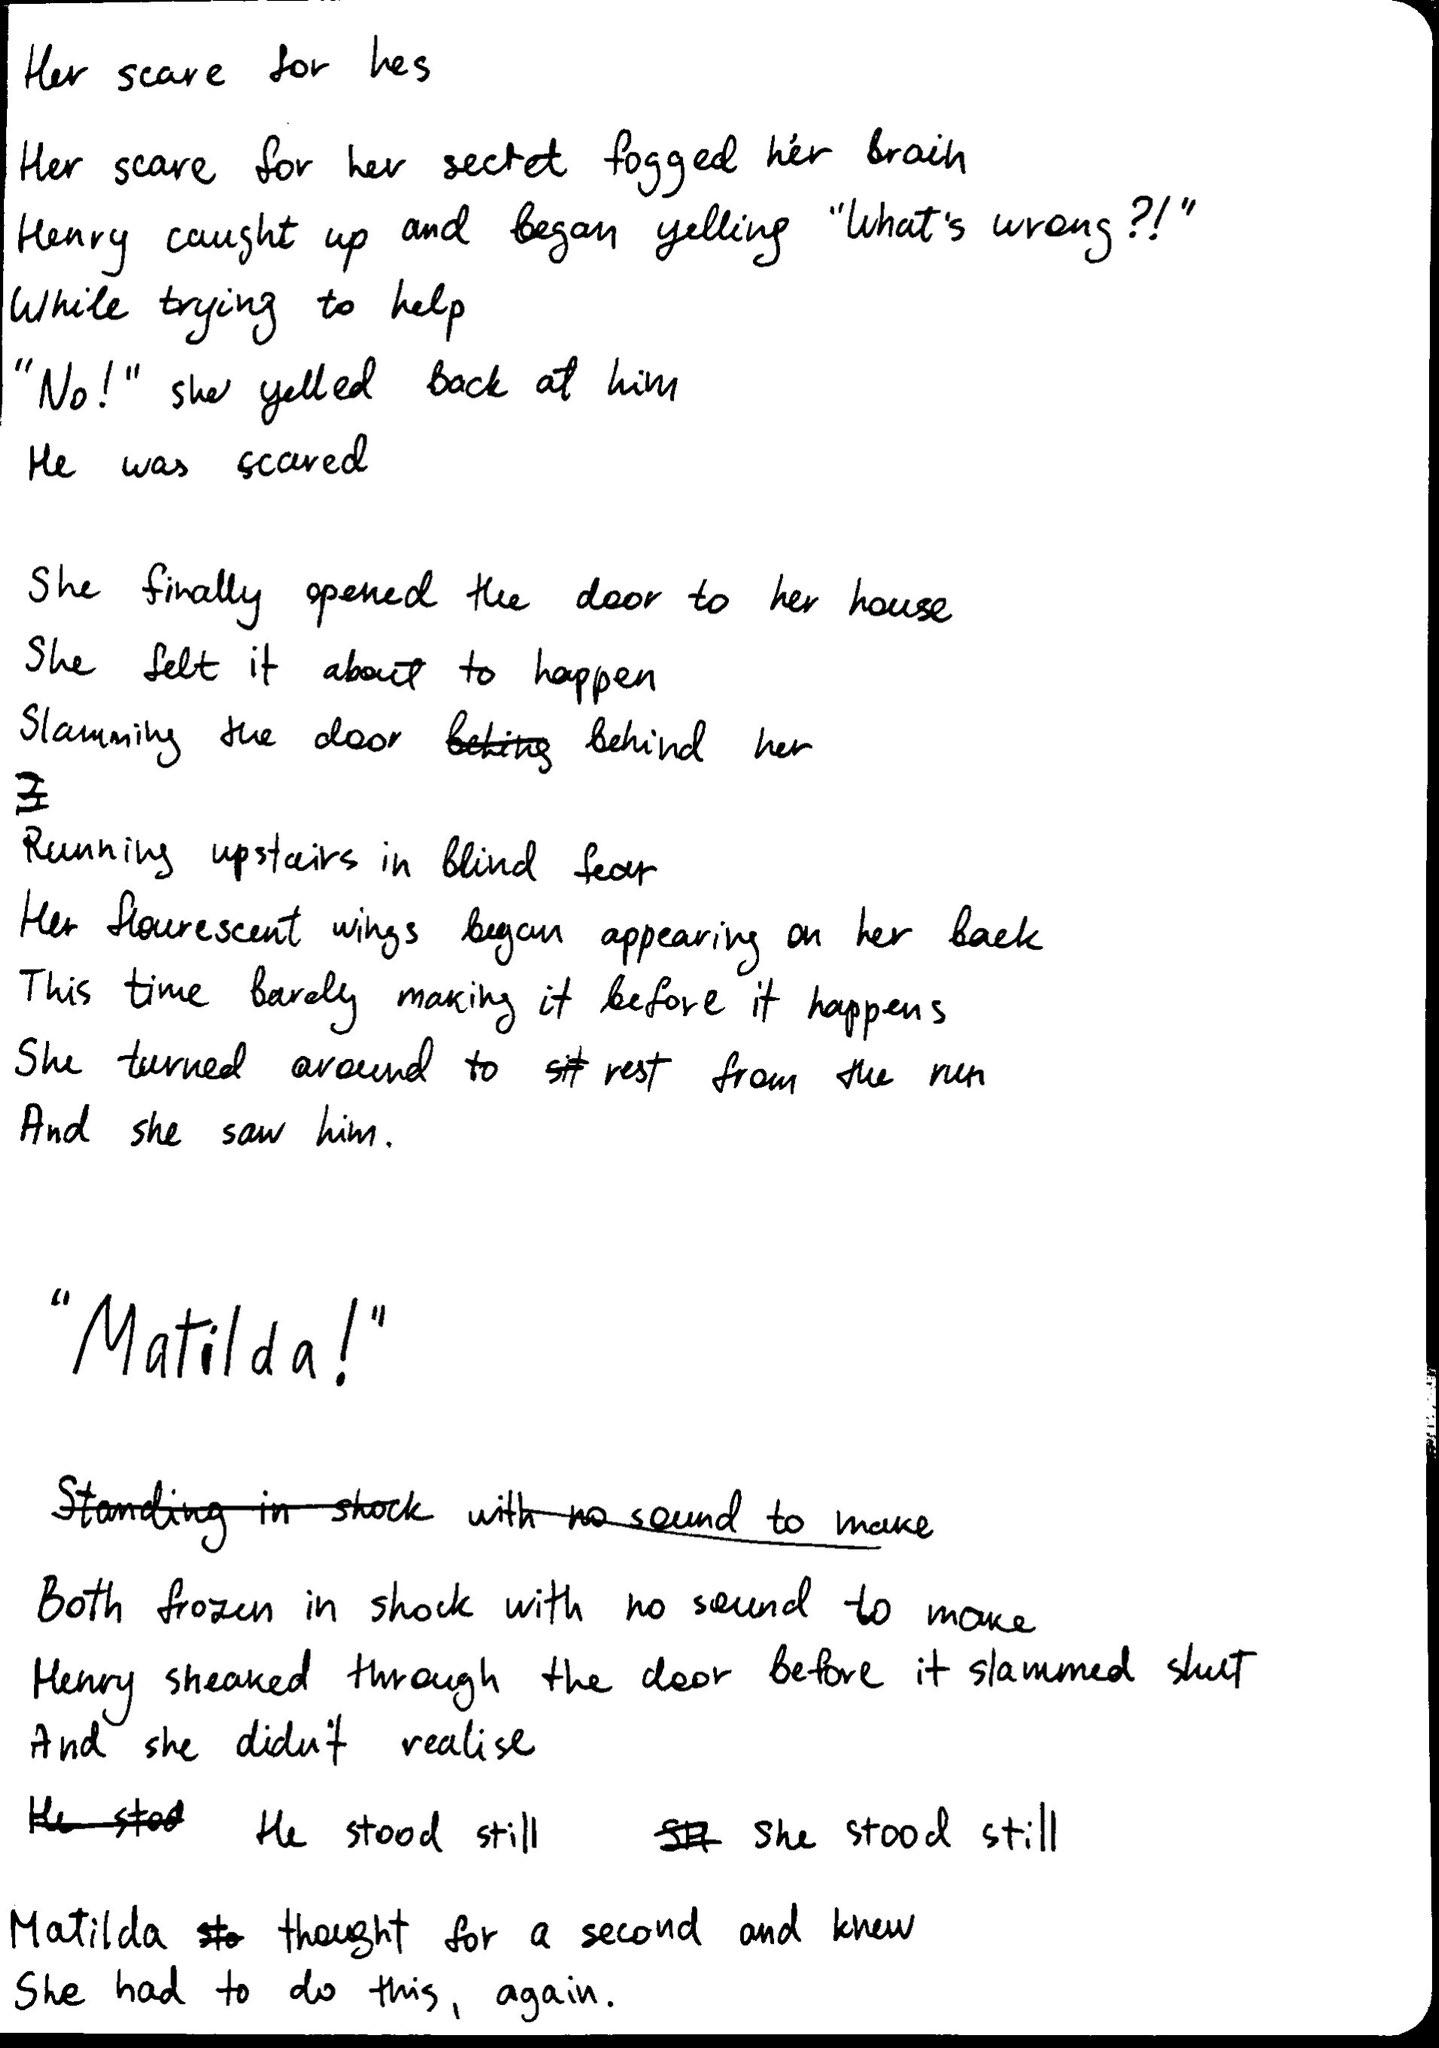 Her scare for hes
Her scare for her secret fogged her brain
Henry caught up and began yelling "What's wrong?!"
While trying to help
"No!" she yelled back at him
He was scared
She finally opened the door to her house
She felt it about to happen
Slamming the door behing behind her
Running upstairs in blind fear
Her flourescent wings began appearing on her back
This time barely making it before it happens
She turned around to sit rest from the run
And she saw him.
"Matilda!"
Standing in shock with no sound to make
Both frozen in shock with no sound to make
Henry sneaked through the door before it slammed shut
And she didn't realise
He stod He stood still She stood still
Matilda sto thought for a second and knew
She had to do this, again.